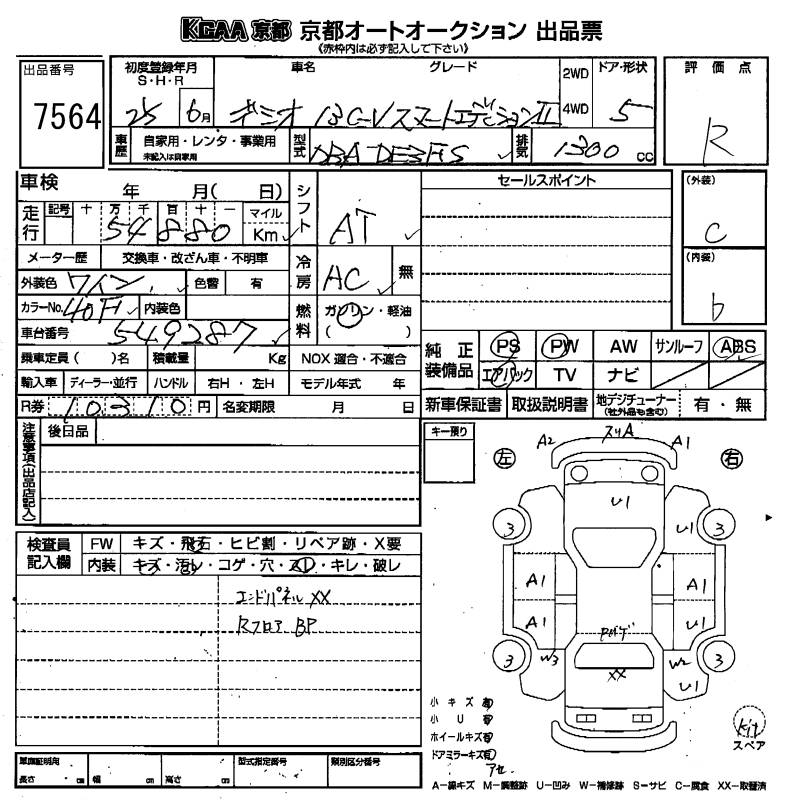 KCAA 京都 京都オートオークション 出品票
《赤枠内は必ず記入して下さい》
出品番号
7564
初度登録年月
S・H・R
25 6月
車名
グレード
デミオ 13C-VスマートエディションII
2WD
4WD
ドア・形状
5
評価点
R
車歴
自家用・レンタ・事業用
未記入は自家用
型式
DBA DE3FS
排気
1300 cc
車検 年 月( 日)
走行
記号 十 万 千 百 十 一
54880
マイル
Km
シフト
AT
セールスポイント
(外装)
C
(内装)
b
メーター歴 交換車・改ざん車・不明車
冷房
AC
無
外装色 ワイン 色替 有
カラーNo. 40F 内装色
燃料
ガソリン・軽油
( )
車台番号 549287
乗車定員( )名 積載量 Kg NOX 適合・不適合
輸入車 ディーラー・並行 ハンドル 右H・左H モデル年式 年
R券 10310 円 名変期限 月 日
純正装備品
PS PW AW サンルーフ ABS
エアバック TV ナビ
新車保証書 取扱説明書 地デジチューナー(社外品も含む) 有・無
注意事項(出品店記入)
後日品
キー預り
検査員記入欄
FW キズ・飛石・ヒビ割・リペア跡・X要
内装 キズ・汚レ・コゲ・穴・スレ・キレ・破レ
エンドパネル XX
Rフロア BP
左
右
A2 スリA A1
U1
U1
3 3
A1 A1
A1 U1
Rカドゲ
W3 W2
3 3
XX
U1
小キズ有
小U有
ホイールキズ有
ドアミラーキズ有
アセ
Kit
スペア
車庫証明用
長さ cm 幅 cm 高さ cm
型式指定番号
類別区分番号
A－線キズ M－調整跡 U－凹み W－補修跡 S－サビ C－腐食 XX－取替済